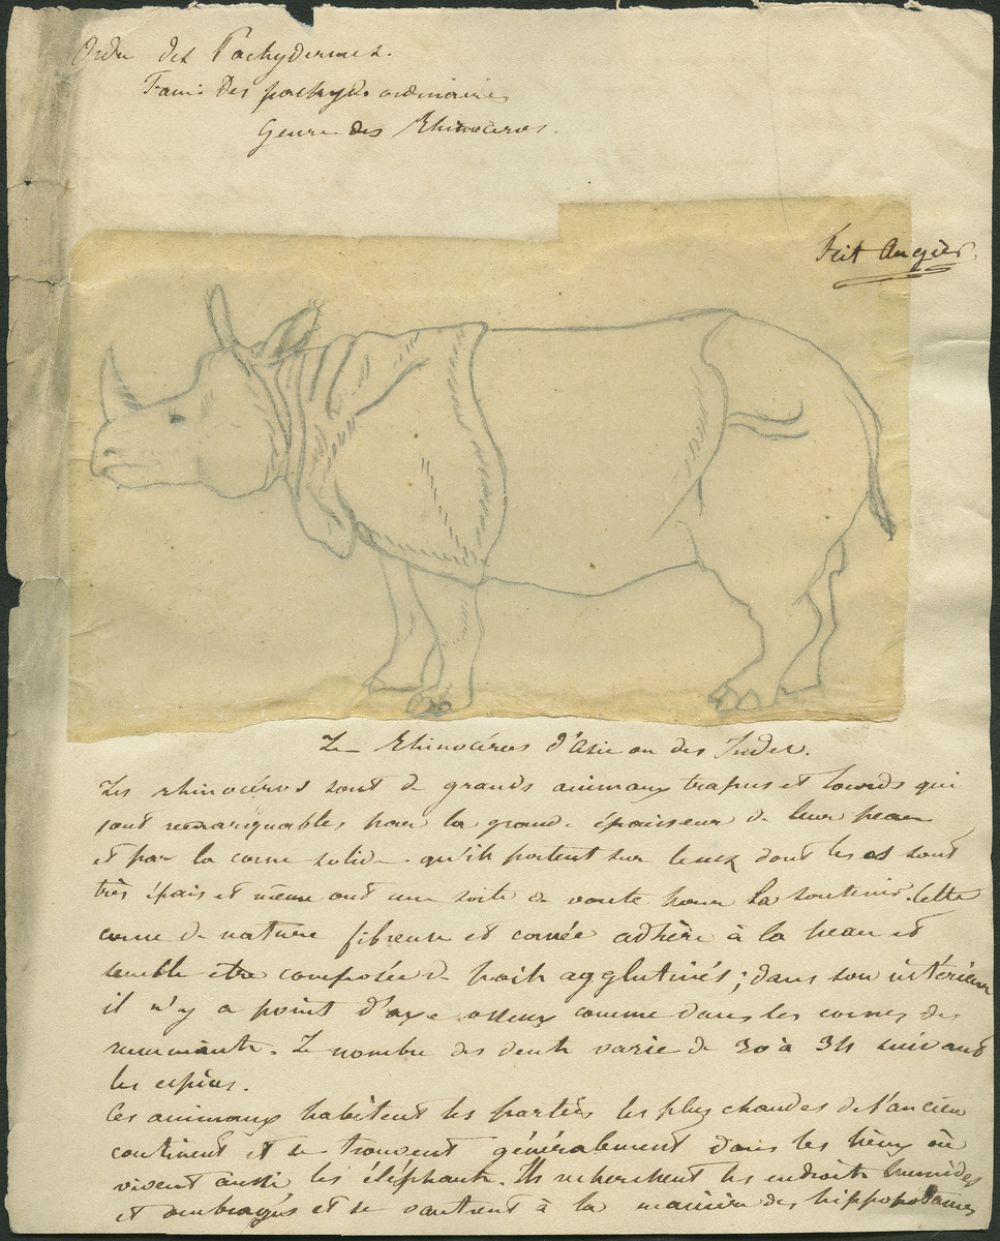 Ordre des Pachydermes.
Fam: Des pachyd. ordinaires
Genre des Rhinocéros.
Fait Angier
Le Rhinocéros d'Asie ou des Indes.
Les rhinocéros sont de grands animaux trapus et lourds qui
sont remarquables pour la grande épaisseur de leur peau
et par la corne solide qu'ils portent sur le nez dont les os sont
très épais et même ont une sorte de voute pour la soutenir. Cette
corne de nature fibreuse et cornée adhère à la peau et
semble être composée de poils agglutinés; dans son intérieur
il n'y a point d'axe osseux comme dans les cornes des
ruminants. Le nombre des dents varie de 30 à 34 suivant
les espèces.
Ces animaux habitent les parties les plus chaudes de l'ancien
continent et se trouvent généralement dans les lieux où
vivent aussi les éléphants. Ils recherchent les endroits humides
et ombragés et se vautrent à la manière des hippopotames